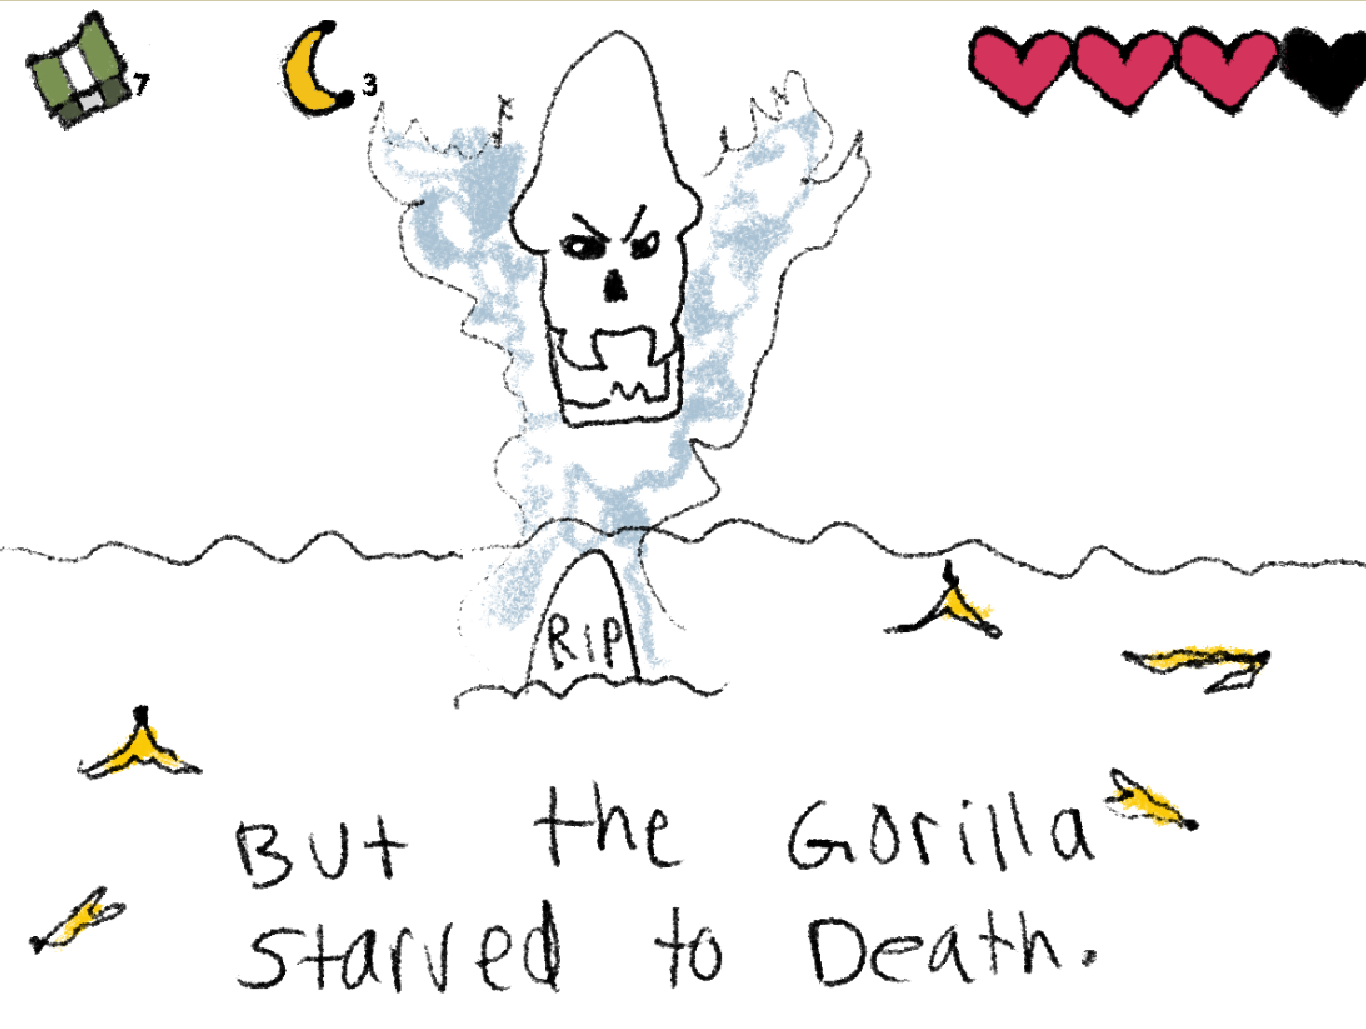 7
3
RIP
But the Gorilla
Starved to Death.